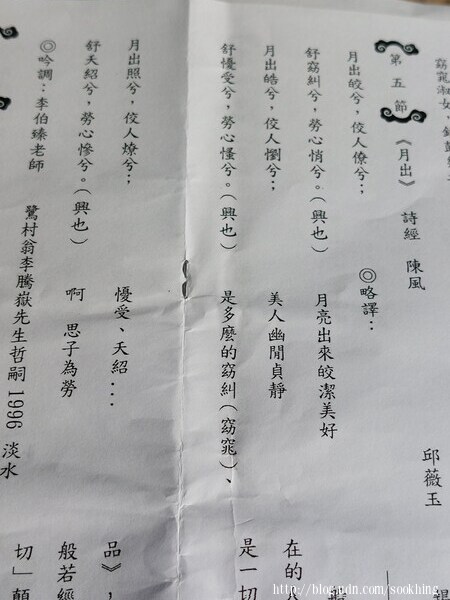 窈窕淑女,
第五節《月出》 詩經 陳風
邱薇玉
月出皎兮,佼人僚兮;
舒窈糾兮,勞心悄兮。(興也)
月出皓兮,佼人懰兮;
舒懮受兮,勞心慅兮。(興也)
月出照兮,佼人燎兮;
舒夭紹兮,勞心慘兮。(興也)
◎吟調:李伯臻老師
◎略譯:
月亮出來皎潔美好
美人幽閒貞靜
是多麼的窈糾(窈窕)、
懮受、夭紹...
啊 思子為勞
鷺村翁李騰嶽先生哲嗣1996 淡水
在的
是一切
品》,
般若經
切」顛
http://blog.udn.com/sookhing